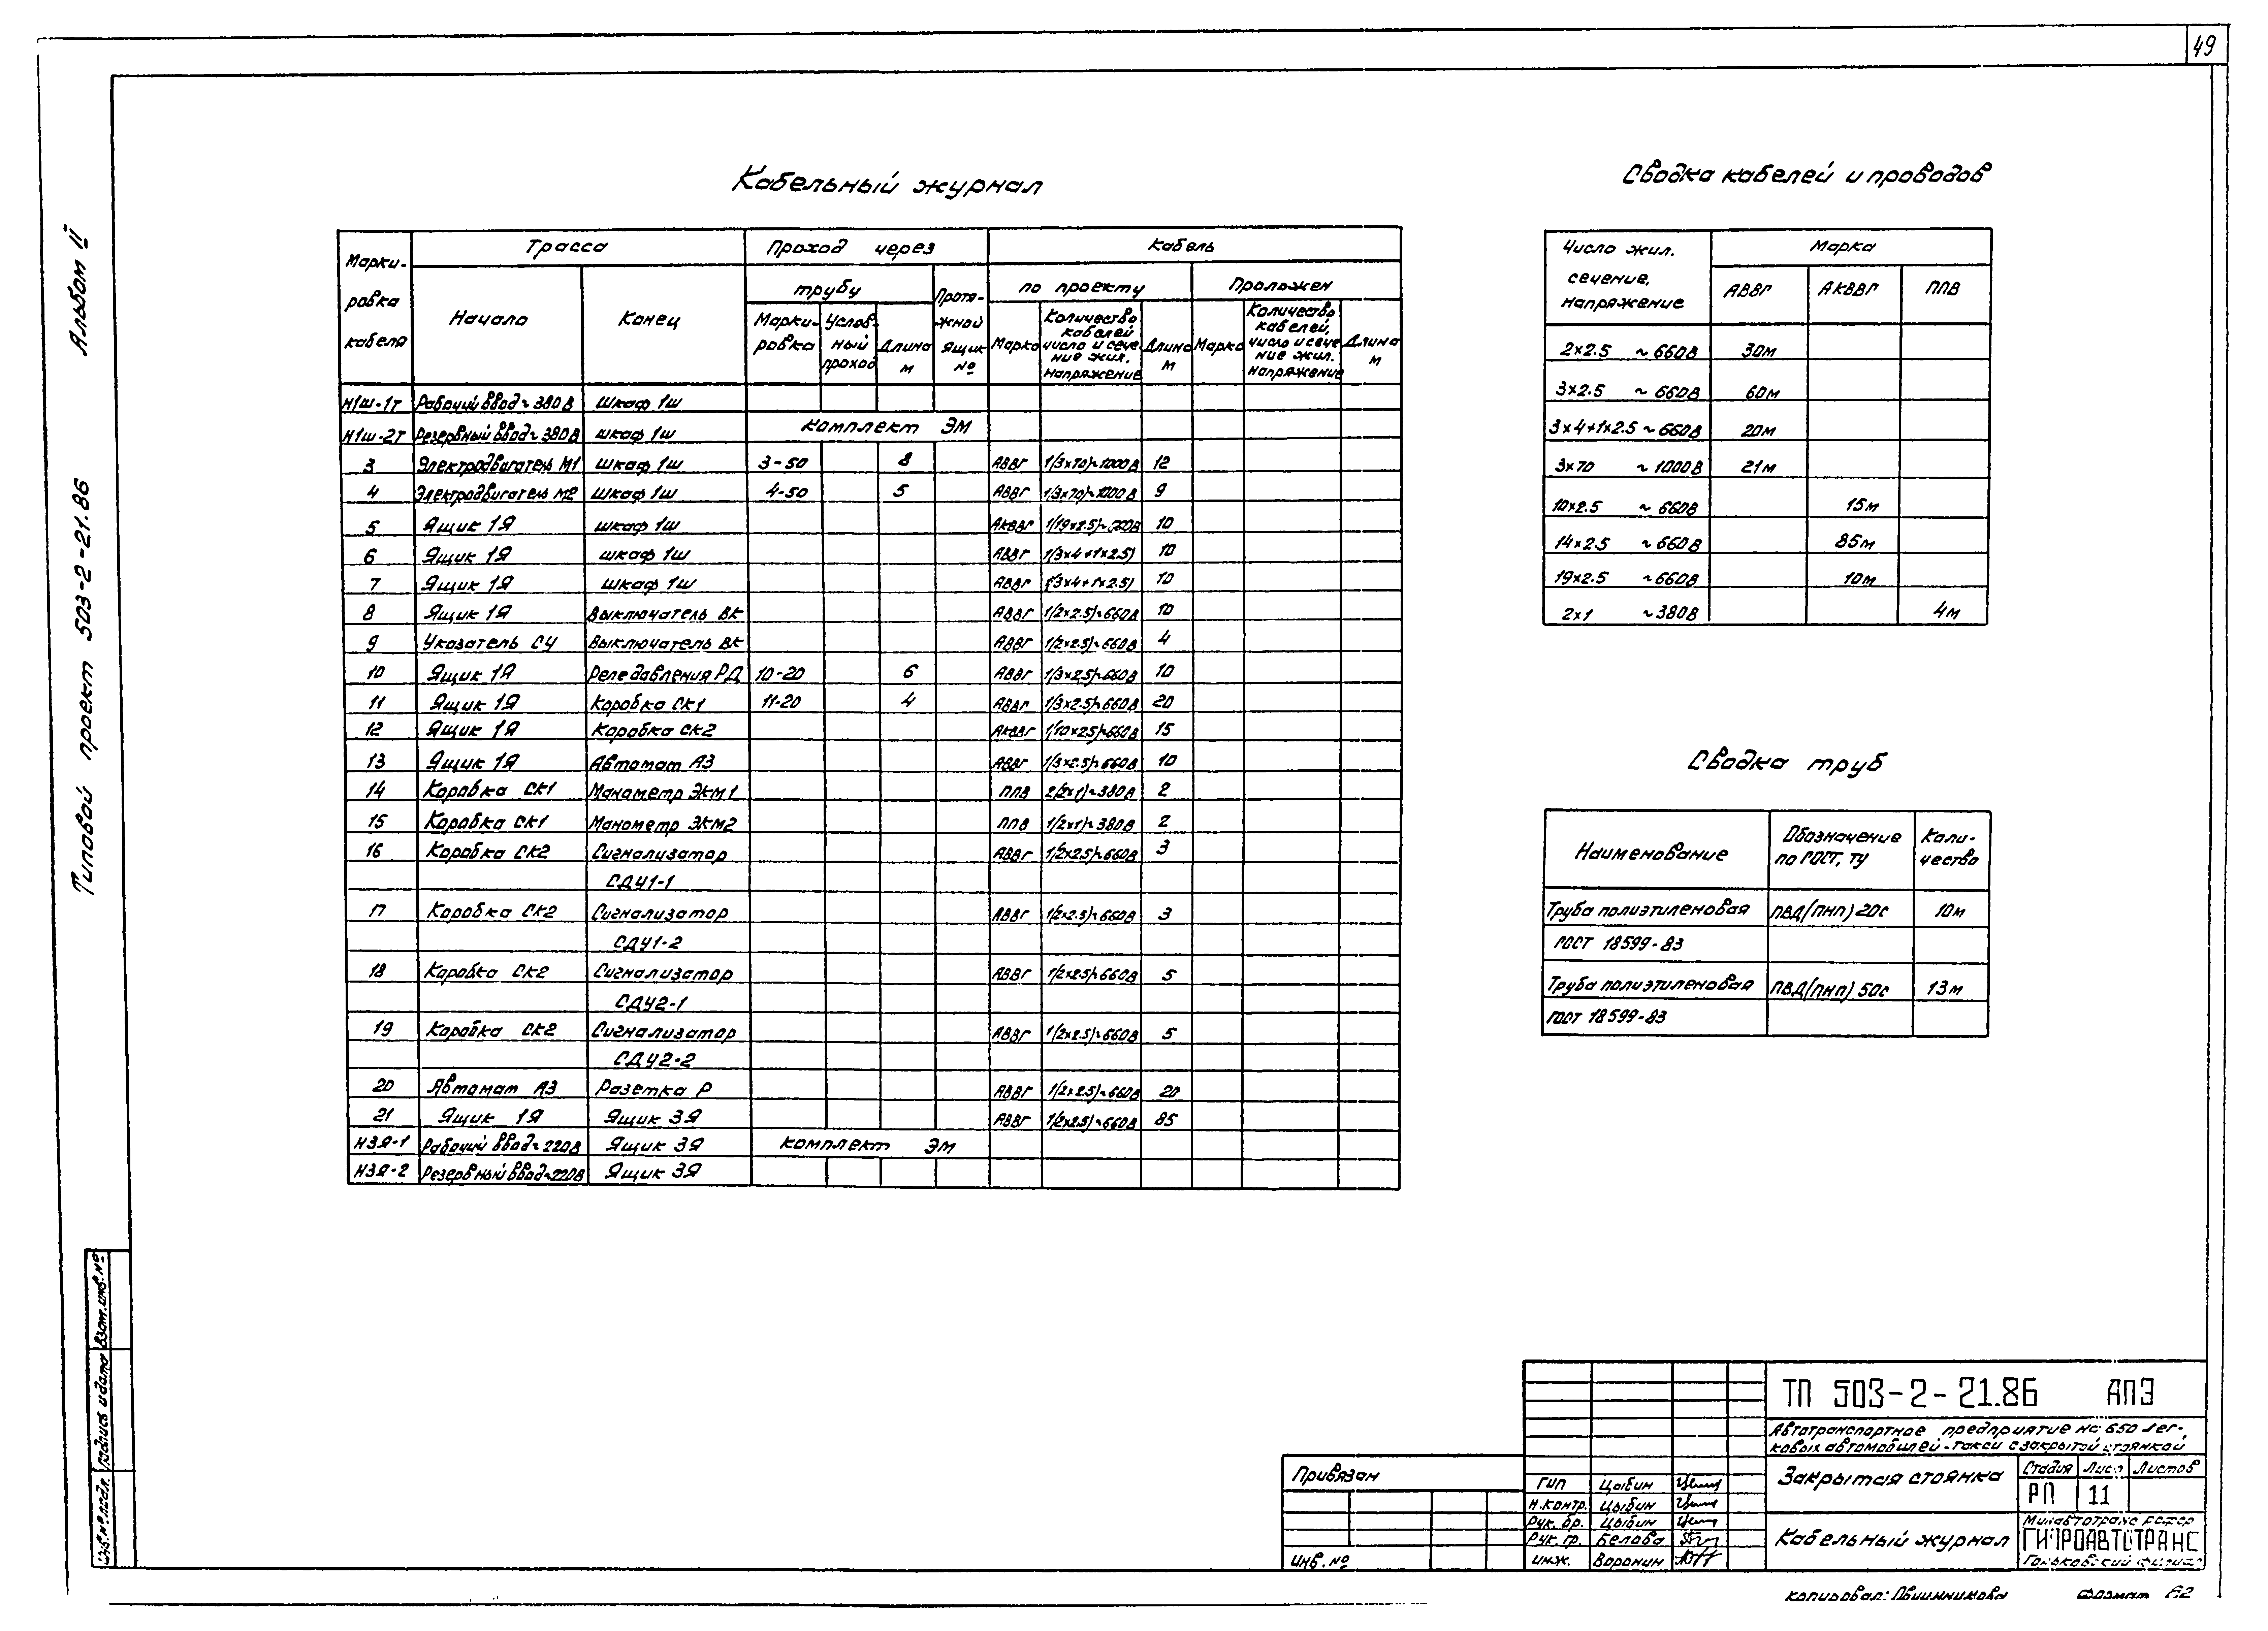 49
Альбом II
Типовой проект 503-2-21.86
Кабельный журнал
Марки- ровка кабеля | Трасса | Проход через | Кабель
Начало | Конец | трубу | Протя- жной ящик № | по проекту | Проложен
Марки- ровка | Услов- ный проход | Длина м | Марка | Количество кабелей число и сече- ние жил. напряжение | Длина м | Марка | Количество кабелей, число и сече ние жил. напряжение | Длина м
Н1ш-1т Рабочий ввод ~ 380В Шкаф 1ш
Н1ш-2т Резервный ввод ~ 380В шкаф 1ш комплект ЭМ
3 Электродвигатель М1 шкаф 1ш 3-50 8 АВВГ 1(3х70)~1000В 12
4 Электродвигатель М2 шкаф 1ш 4-50 5 АВВГ 1(3х70)~1000В 9
5 Ящик 1Я шкаф 1ш АКВВГ 1(19х2.5)~660В 10
6 Ящик 1Я шкаф 1ш АВВГ 1(3х4+1х2.5) 10
7 Ящик 1Я шкаф 1ш АВВГ 1(3х4+1х2.5) 10
8 Ящик 1Я Выключатель ВК АВВГ 1(2х2.5)~660В 10
9 Указатель СУ Выключатель ВК АВВГ 1(2х2.5)~660В 4
10 Ящик 1Я Реле давления РД 10-20 6 АВВГ 1(3х2.5)~660В 10
11 Ящик 1Я Коробка СК1 11-20 4 АВВГ 1(3х2.5)~660В 20
12 Ящик 1Я Коробка СК2 АКВВГ 1(10х2.5)~660В 15
13 Ящик 1Я Автомат А3 АВВГ 1(3х2.5)~660В 10
14 Коробка СК1 Манометр ЭКМ1 ППВ 2(2х1)~380В 2
15 Коробка СК1 Манометр ЭКМ2 ППВ 1(2х1)~380В 2
16 Коробка СК2 Сигнализатор АВВГ 1(2х2.5)~660В 3
СДУ1-1
17 Коробка СК2 Сигнализатор АВВГ 1(2х2.5)~660В 3
СДУ1-2
18 Коробка СК2 Сигнализатор АВВГ 1(2х2.5)~660В 5
СДУ2-1
19 Коробка СК2 Сигнализатор АВВГ 1(2х2.5)~660В 5
СДУ2-2
20 Автомат А3 Розетка Р АВВГ 20
21 Ящик 1Я Ящик 3Я АВВГ 1(2х2.5)~660В 85
Н3Я-1 Рабочий ввод ~ 220В Ящик 3Я комплект ЭМ
Н3Я-2 Резервный ввод ~ 220В Ящик 3Я
Сводка кабелей и проводов
Число жил. сечение, напряжение | Марка
АВВГ | АКВВГ | ППВ
2х2.5 ~ 660В 30м
3х2.5 ~ 660В 60м
3х4+1х2.5 ~ 660В 20м
3х70 ~ 1000В 21м
10х2.5 ~ 660В 15м
14х2.5 ~ 660В 85м
19х2.5 ~ 660В 10м
2х1 ~ 380В 4м
Сводка труб
Наименование | Обозначение по ГОСТ, ТУ | Коли- чество
Труба полиэтиленовая ПВД(ПНП) 20С 10м
ГОСТ 18599-83
Труба полиэтиленовая ПВД(ПНП) 50С 13м
ГОСТ 18599-83
Взам. инв. №
Подпись и дата
Инв. № подл.
Привязан
Инв. №
ГИП Цыбин
Н.контр. Цыбин
Рук. бр. Цыбин
Рук. гр. Белова
Инж. Воронин
ТП 503-2-21.86 АПЭ
Автотранспортное предприятие на 650 лег-
ковых автомобилей-такси с закрытой стоянкой
Закрытая стоянка
Стадия Лист Листов
РП 11
Кабельный журнал
Минавтотранс РСФСР
ГИПРОАВТОТРАНС
Горьковский филиал
Копировал: Овчинникова Формат А2